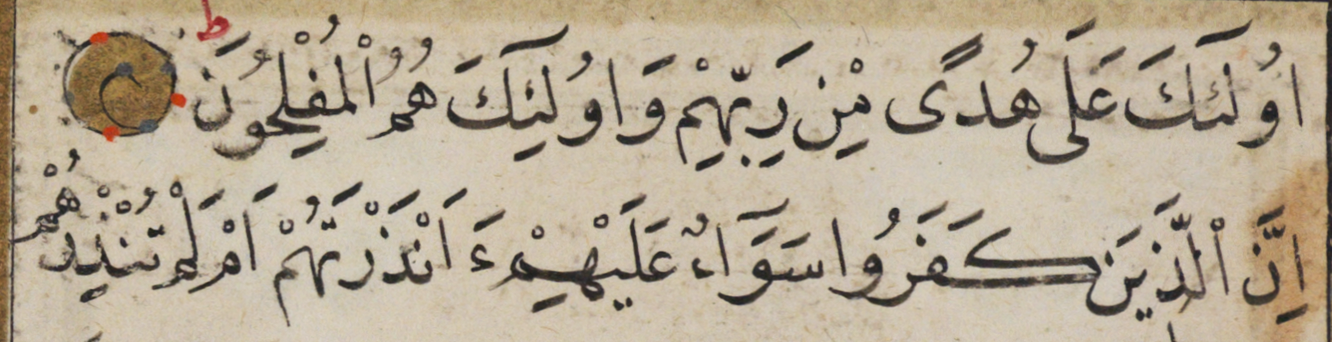 اُولَئِكَ عَلَى هُدًى مِنْ رَبِّهِمْ وَاُولَئِكَ هُمُ الْمُفْلِحُونَ ط
اِنَّ الَّذِينَ كَفَرُوا سَوَاءٌ عَلَيْهِمْ ءَ اَنْذَرْتَهُمْ اَمْ لَمْ تُنْذِرْهُمْ